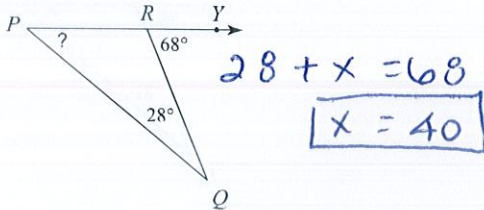 P R Y
? 68°
28°
Q
28 + x = 68
x = 40